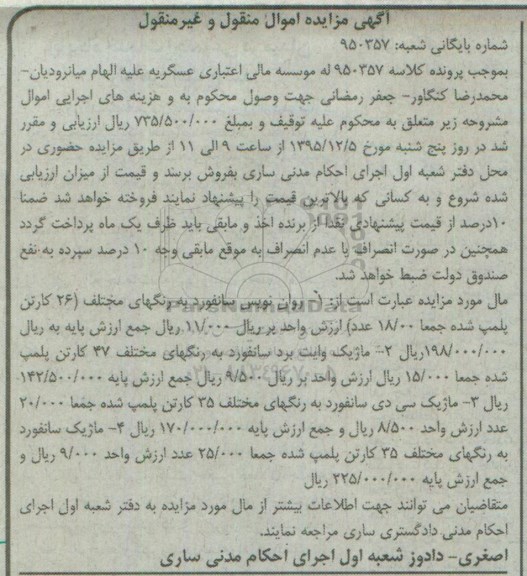 آگهی مزایده اموال منقول و غیرمنقول
شماره بایگانی شعبه: ۹۵۰۳۵۷
بموجب پرونده کلاسه ۹۵۰۳۵۷ له موسسه مالی اعتباری عسگریه علیه الهام میانرودیان-
محمدرضا کنگاور- جعفر رمضانی جهت وصول محکوم به و هزینه های اجرایی اموال
مشروحه زیر متعلق به محکوم علیه توقیف و بمبلغ ۷۳۵/۵۰۰/۰۰۰ ریال ارزیابی و مقرر
شد در روز پنج شنبه مورخ ۱۳۹۵/۱۲/۵ از ساعت ۹ الی ۱۱ از طریق مزایده حضوری در
محل دفتر شعبه اول اجرای احکام مدنی ساری بفروش برسند و قیمت از میزان ارزیابی
شده شروع و به کسانی که بالاترین قیمت را پیشنهاد نمایند فروخته خواهد شد ضمنا
۱۰درصد از قیمت پیشنهادی نقدا از برنده اخذ و مابقی باید ظرف یک ماه پرداخت گردد
همچنین در صورت انصراف یا عدم انصراف به موقع مابقی وجه ۱۰ درصد سپرده به نفع
صندوق دولت ضبط خواهد شد.
مال مورد مزایده عبارت است از: ۱- روان نویس سانفورد به رنگهای مختلف (۲۶ کارتن
پلمپ شده جمعا ۱۸/۰۰۰ عدد) ارزش واحد بر ریال ۱۱/۰۰۰ ریال جمع ارزش پایه به ریال
۱۹۸/۰۰۰/۰۰۰ریال ۲- ماژیک وایت برد سانفورد به رنگهای مختلف ۴۷ کارتن پلمپ
شده جمعا ۱۵/۰۰۰ ریال ارزش واحد بر ریال ۹/۵۰۰ ریال جمع ارزش پایه ۱۴۲/۵۰۰/۰۰۰
ریال ۳- ماژیک سی دی سانفورد به رنگهای مختلف ۳۵ کارتن پلمپ شده جمعا ۲۰/۰۰۰
عدد ارزش واحد ۸/۵۰۰ ریال و جمع ارزش پایه ۱۷۰/۰۰۰/۰۰۰ ریال ۴- ماژیک سانفورد
به رنگهای مختلف ۳۵ کارتن پلمپ شده جمعا ۲۵/۰۰۰ عدد ارزش واحد ۹/۰۰۰ ریال و
جمع ارزش پایه ۲۲۵/۰۰۰/۰۰۰ ریال
متقاضیان می توانند جهت اطلاعات بیشتر از مال مورد مزایده به دفتر شعبه اول اجرای
احکام مدنی دادگستری ساری مراجعه نمایند.
اصغری- دادوز شعبه اول اجرای احکام مدنی ساری